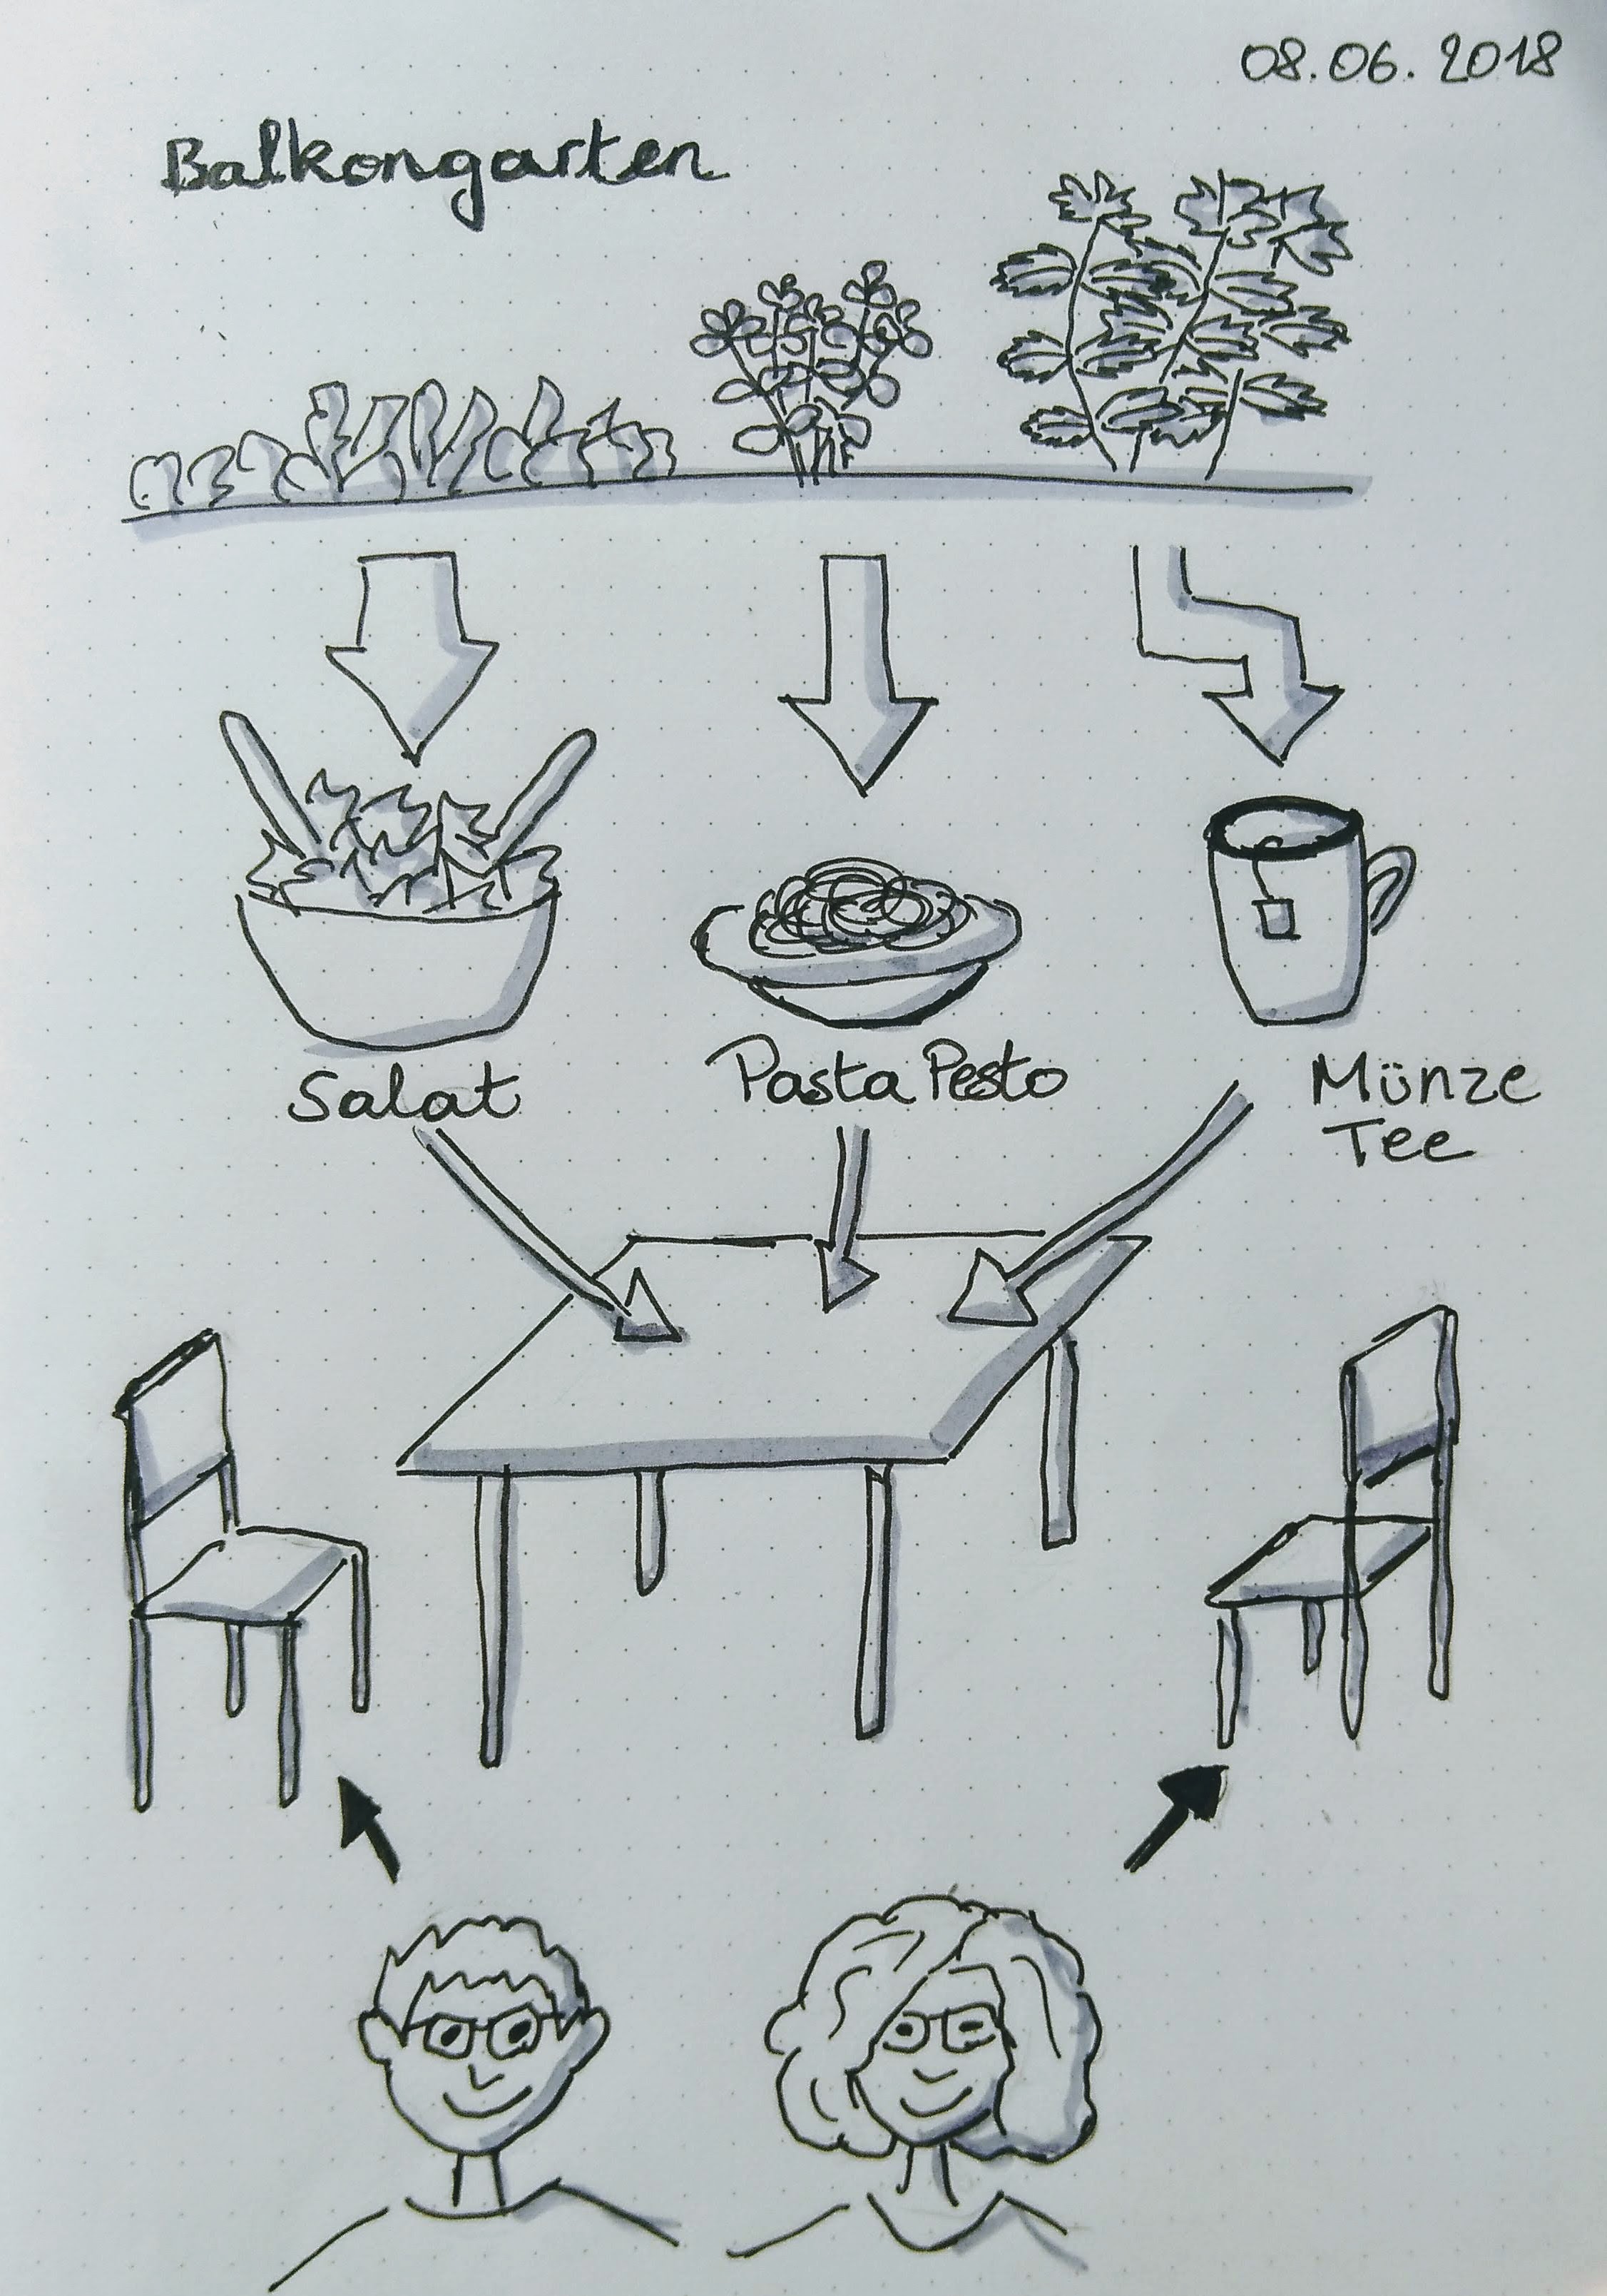 08.06.2018
Balkongarten
Salat
Pasta Pesto
Münze
Tee